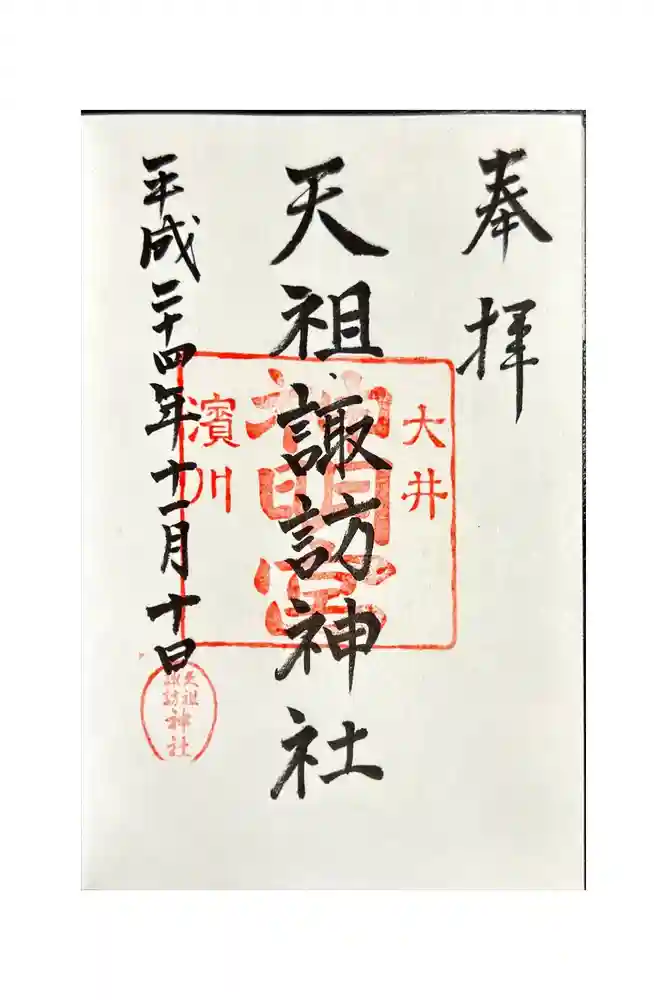 奉拝
天祖・諏訪神社
平成二十四年十一月十日
大井
神明宮
濱川
天祖
諏訪
神社